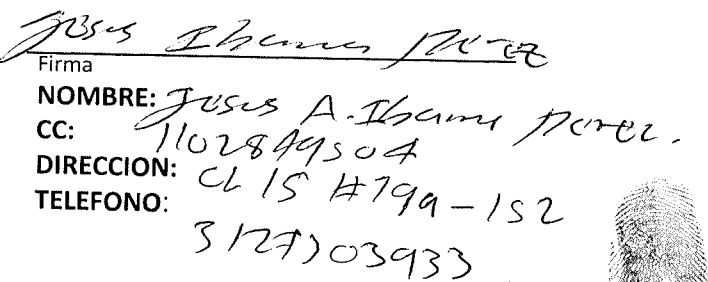 Jesus Ibarra Perez
Firma
NOMBRE: Jesus A. Ibarra Perez.
CC: 1102849504
DIRECCION: CL 15 #79a-152
TELEFONO:
3127303933